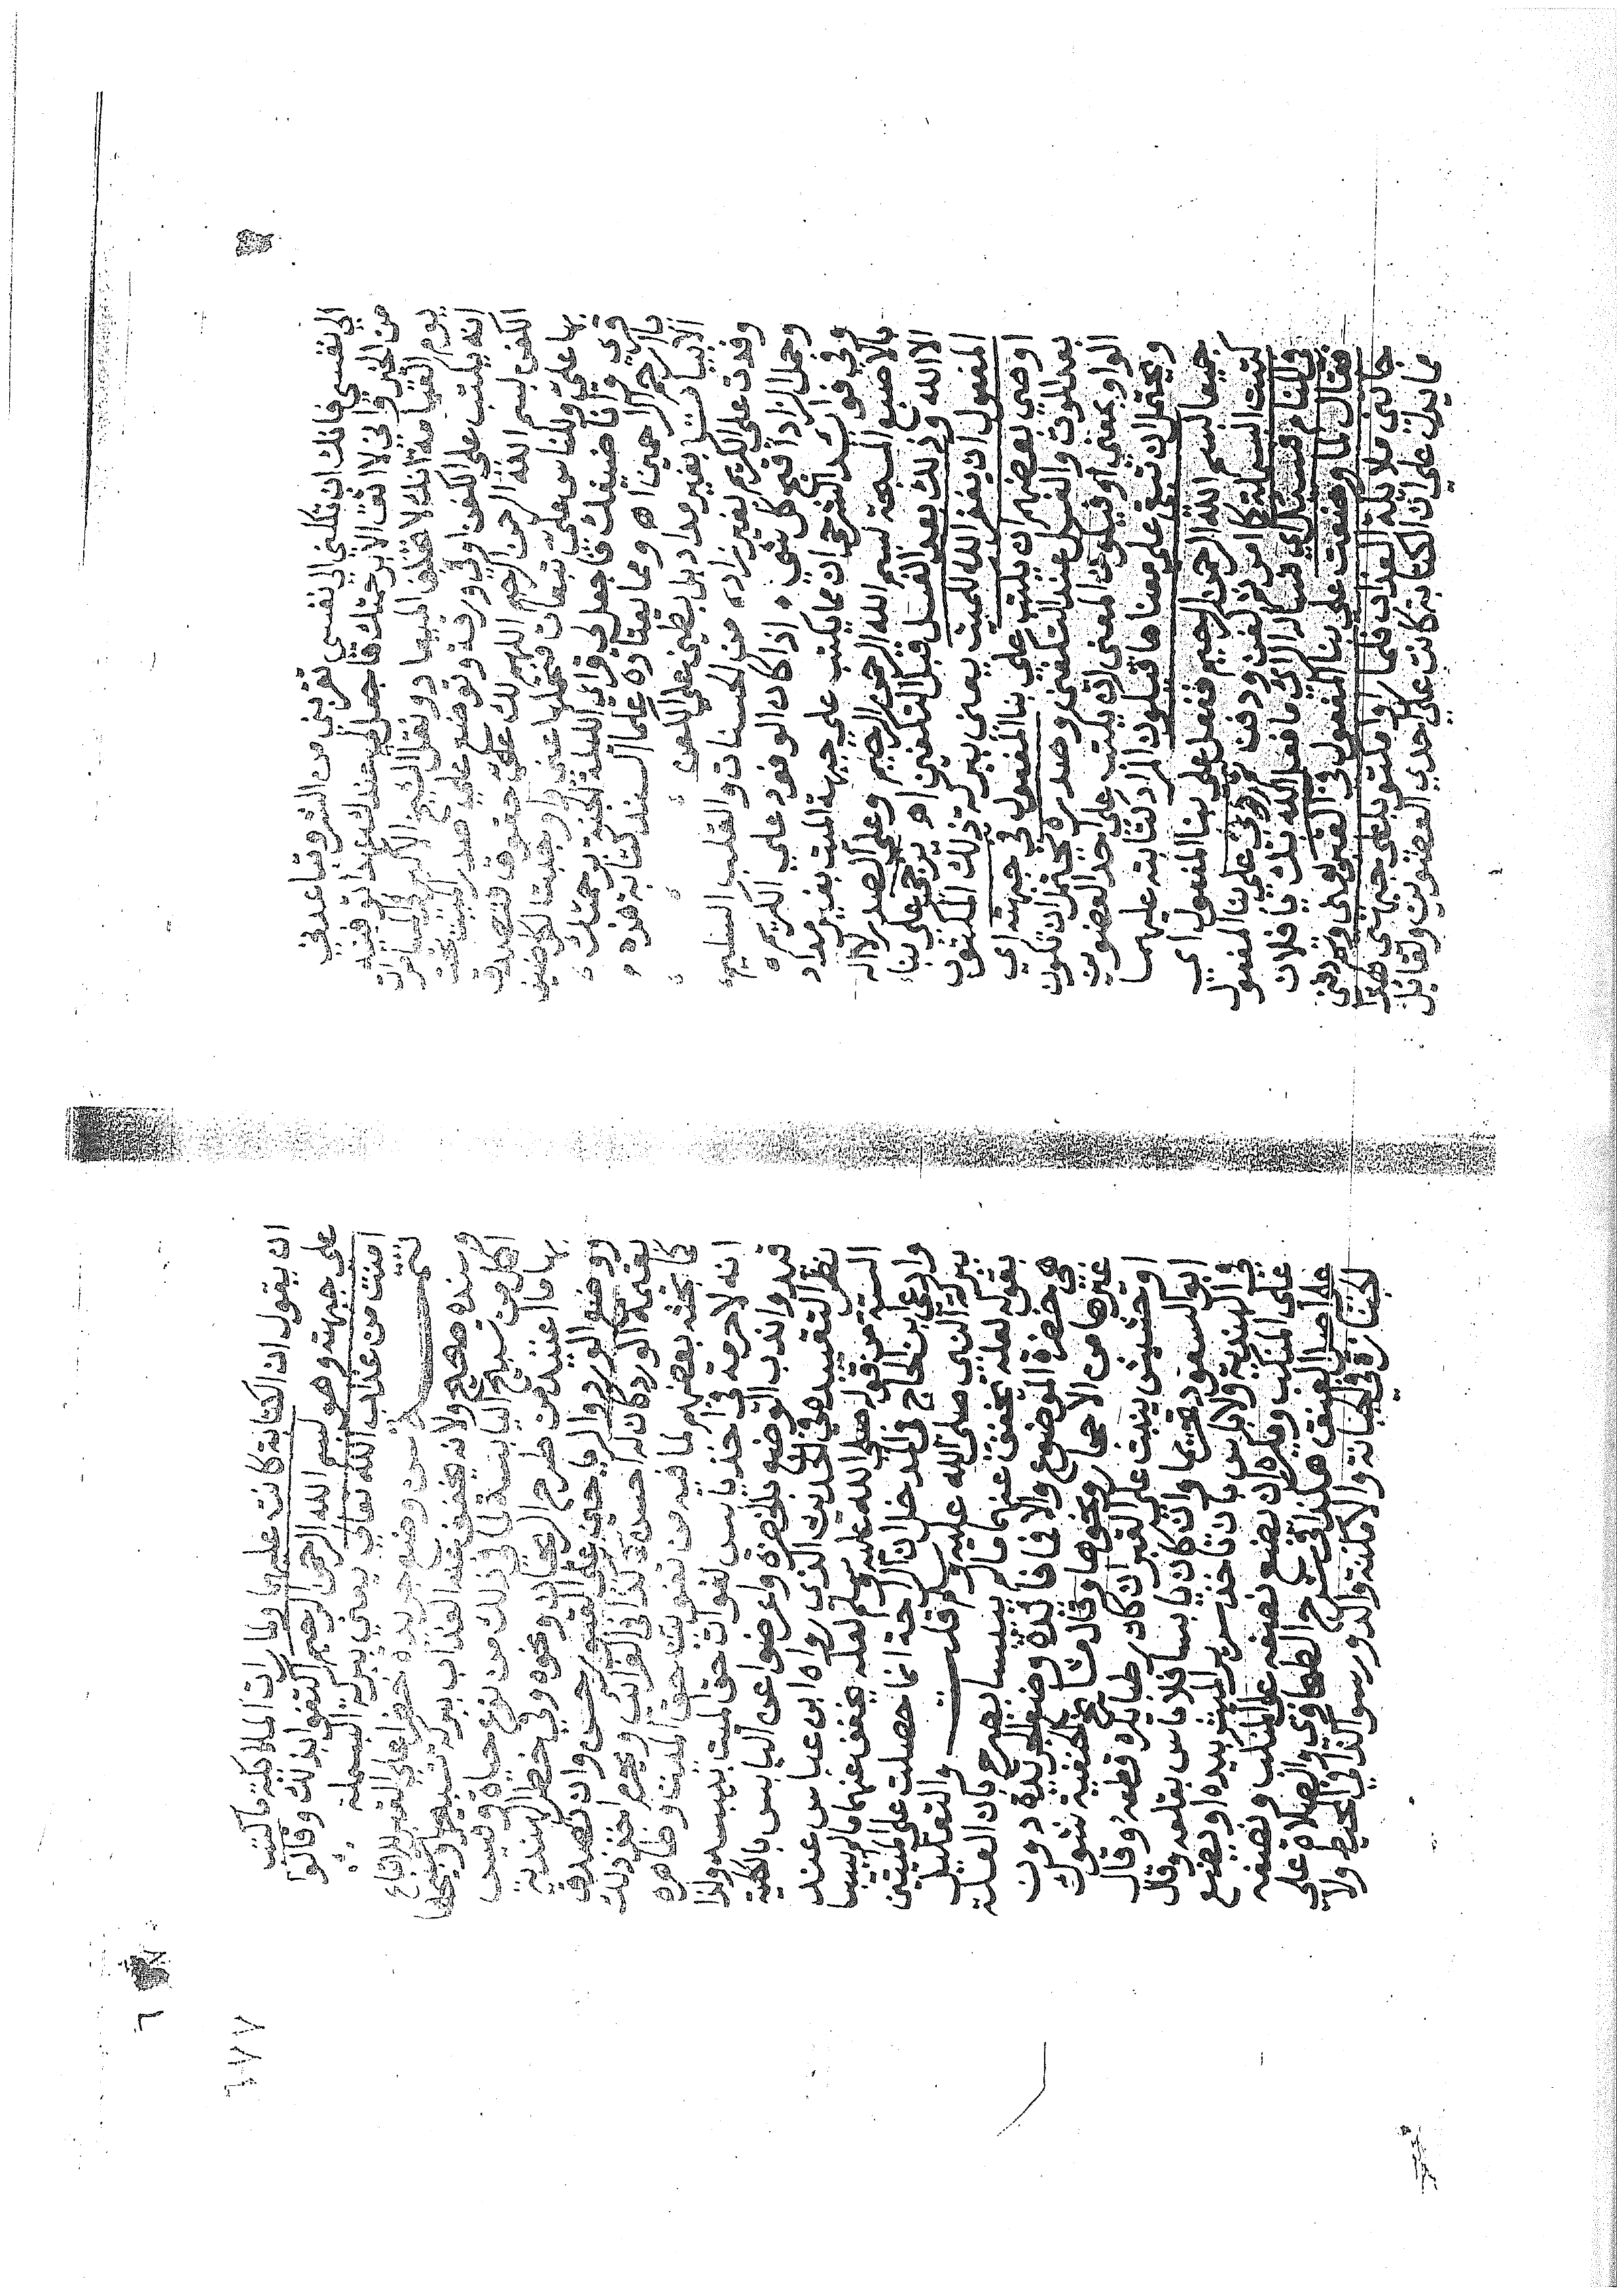 الى نفسي فانك ان تكلني الى نفسي تقربني من الشر وتباعدني
من الخير واني لا اثق الا برحمتك فاجعل لي عندك عهدا توفينيه
يوم القيامة انك لا تخلف الميعاد ونقل الشيخ الاكبر في المسامرات
انه يكتب على الكفن او في ورقة وتوضع على صدر الميت تحت
الكفن بسم الله الرحمن الرحيم اللهم لك علي حقوق فتصدق
بها علي وللناس علي تبعات فتحملها عني وقد اوجبت لكل ضيف
قري وانا ضيفك فاجعل قراي الليلة الجنة برحمتك
يا ارحم الراحمين اه ومما يعتاده علما السند كتابة هذه
الابيات بغير مداد بل بطين على اللبن
وفدت على الكريم بغير زاد من الحسنات والقلب السليم
وحمل الزاد اقبح كل شي اذا كان الوفود على الكريم
وفي فوائد الشرجي ان مما يكتب على جبهة الميت بغير مداد
بالاصبع المسبحة بسم الله الرحمن الرحيم وعلى الصدر لا اله
الا الله وذلك بعد الغسل قبل التكفين اه يرجى على بناء
المفعول ان يغفر الله للميت يعني ببركة ذلك المكتوب
اوصى بعضهم ان يكتب على بنا المفعول في جبهته اي
بعد الموت والغسل عند التكفين وصدره يحتمل ان تكون
الواو بمعنى او فيكون المعنى انه يكتب على احد العضوين
ويحتمل ان تبقى على معناها فيكون المراد كتابته عليهما
جميعا بسم الله الرحمن الرحيم ففعل على بنا المفعول اي
كتبت البسملة كما امر ثم كفن ودفن ثم رؤي على بنا المفعول
في المنام فسئل اي فسال الرائ ما فعل الله بك يا فلان
فقال لما وضعت على بنا المفعول في القبر
جاتني ملائكة العذاب فلما راوا مكتوبا على جبهتي هذا
مما يدل على ان الكتابة كانت على احدي العضوين ولقائل
ان يقول ان الكتابة كانت عليهما ولما رات الملائكة ما كتب
على جبهته وهو بسم الله الرحمن الرحيم اكتفوا بذلك وقالوا
امنت من عذاب الله تعالى يعني ببركة البسملة
تتمة يسن وضع جريدة خضرا على القبر للاتباع
وسنده صحيح ولانه يخفف عنه العذاب ببركة تسبيحها وتسبيحها
اكمل من تسبيح اليابسة لما في ذلك من نوع حياة وقيس
بها ما اعتيد من طرح الريحان ونحوه وفي خطر الهندية
وضع الورد والرياحين على القبور حسن وان تصدق
بقيمة الورد كان احسن كذا في الغرائب ويحرم اخذ ذلك
كما بحثه بعضهم لما فيه من تفويت حق الميت وظاهره
انه لا حرمة في اخذ يابس لفوات حق الميت بيبسه ولذا
قيدوا ندب الوضع بالخضرة واعرضوا عن اليابس بالكلية
نظرا لتقييده في الحديث الذي رواه ابن عباس عند
الستة من قوله صلى الله عليه وسلم لعله يخفف عنهما ما لم ييبسا
وادعى ابن الحاج في المدخل ان الراحة انما حصلت على الميتين
ببركة النبي صلى الله عليه وسلم قلت والتعليل
بقوله لعله يخفف عنهما ما لم ييبسا يصرح بان العلة
هي خضرة الموضوع والا فما فائدة وضع الجريدة دون
غيرها من الاحجار ونحوها وقال مشايخ الحنفية شوك
او حشيش ينبت على القبر ان كان رطبا يكره قطعه وقال
ابو السعود تحريما وان كان يابسا فلا باس بقلعه وقال
في الهندية ولا باس بان تاخذ سرير الميت بيده او يضع
على المنكب ويكره ان يضع نصفه على المنكب ونصفه
على اصل العنق هكذا في شرح الطحاوي والصلاة على
الجنازة في الجبانة والامكنة والدور سوا كذا في المحيط ولا